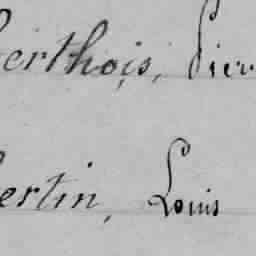 erthois, Pier
ertin, Louis